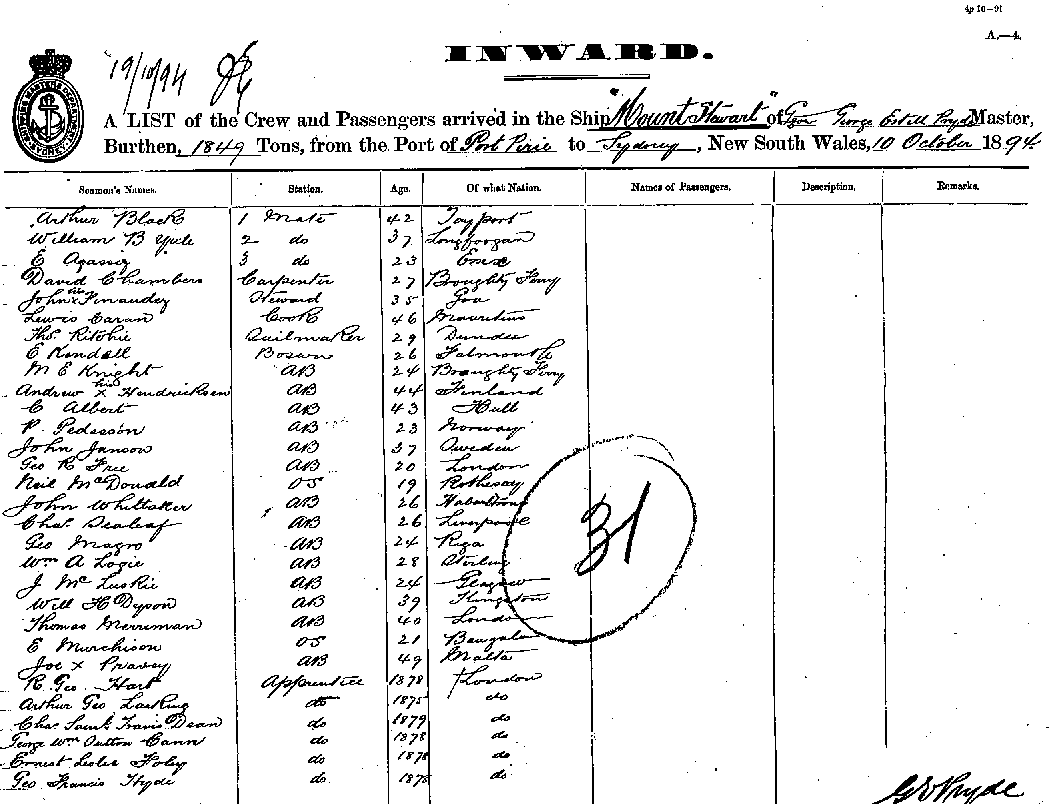 4p 10-91
A.—4.
INWARD.
19/10/94
A LIST of the Crew and Passengers arrived in the Ship "Mount Stewart" of George Master,
Burthen, 1849 Tons, from the Port of Port Pirie to Sydney, New South Wales, 10 October 1894
Seamen's Names. Station. Age. Of what Nation. Names of Passengers. Description. Remarks.
Arthur Black 1 Mate 42 Tayport
William B Yule 2 do 37 Longforgan
E Agassiz 3 do 23 Essex
David Chambers Carpenter 27 Broughty Ferry
his
John x Fernandez Steward 35 Goa
Lewis Caran Cook 46 Mauritius
Thos. Ritchie Sailmaker 29 Dundee
E Kendall Bosun 26 Falmouth
M E Knight AB 24 Broughty Ferry
his
Andrew x Hendricksen AB 44 Finland
C Albert AB 43 Hull
P. Pedersson AB 23 Norway
John Janson AB 37 Sweden
Geo R Free AB 20 London
Neil McDonald OS 19 Rothesay
John Whittaker AB 26
Chas. Dealeaf AB 26 Liverpool
Geo Magro AB 24 Riga
Wm A Logie AB 28 Stirling
J McLuskie AB 24 Glasgow
Will H Dyson AB 39 Kingston
Thomas Merriman AB 40 London
E Murchison OS 21 Bangalo
Joe x AB 49 Malta
R. Geo. Hart Apprentice 1878 London
Arthur Geo Larking do 1875 do
Chas Saml. Travis Dean do 1879 do
George Wm Outton Cann do 1878 do
Ernest Leslie Foley do 1878 do
Geo Francis Hyde do 1878 do
31